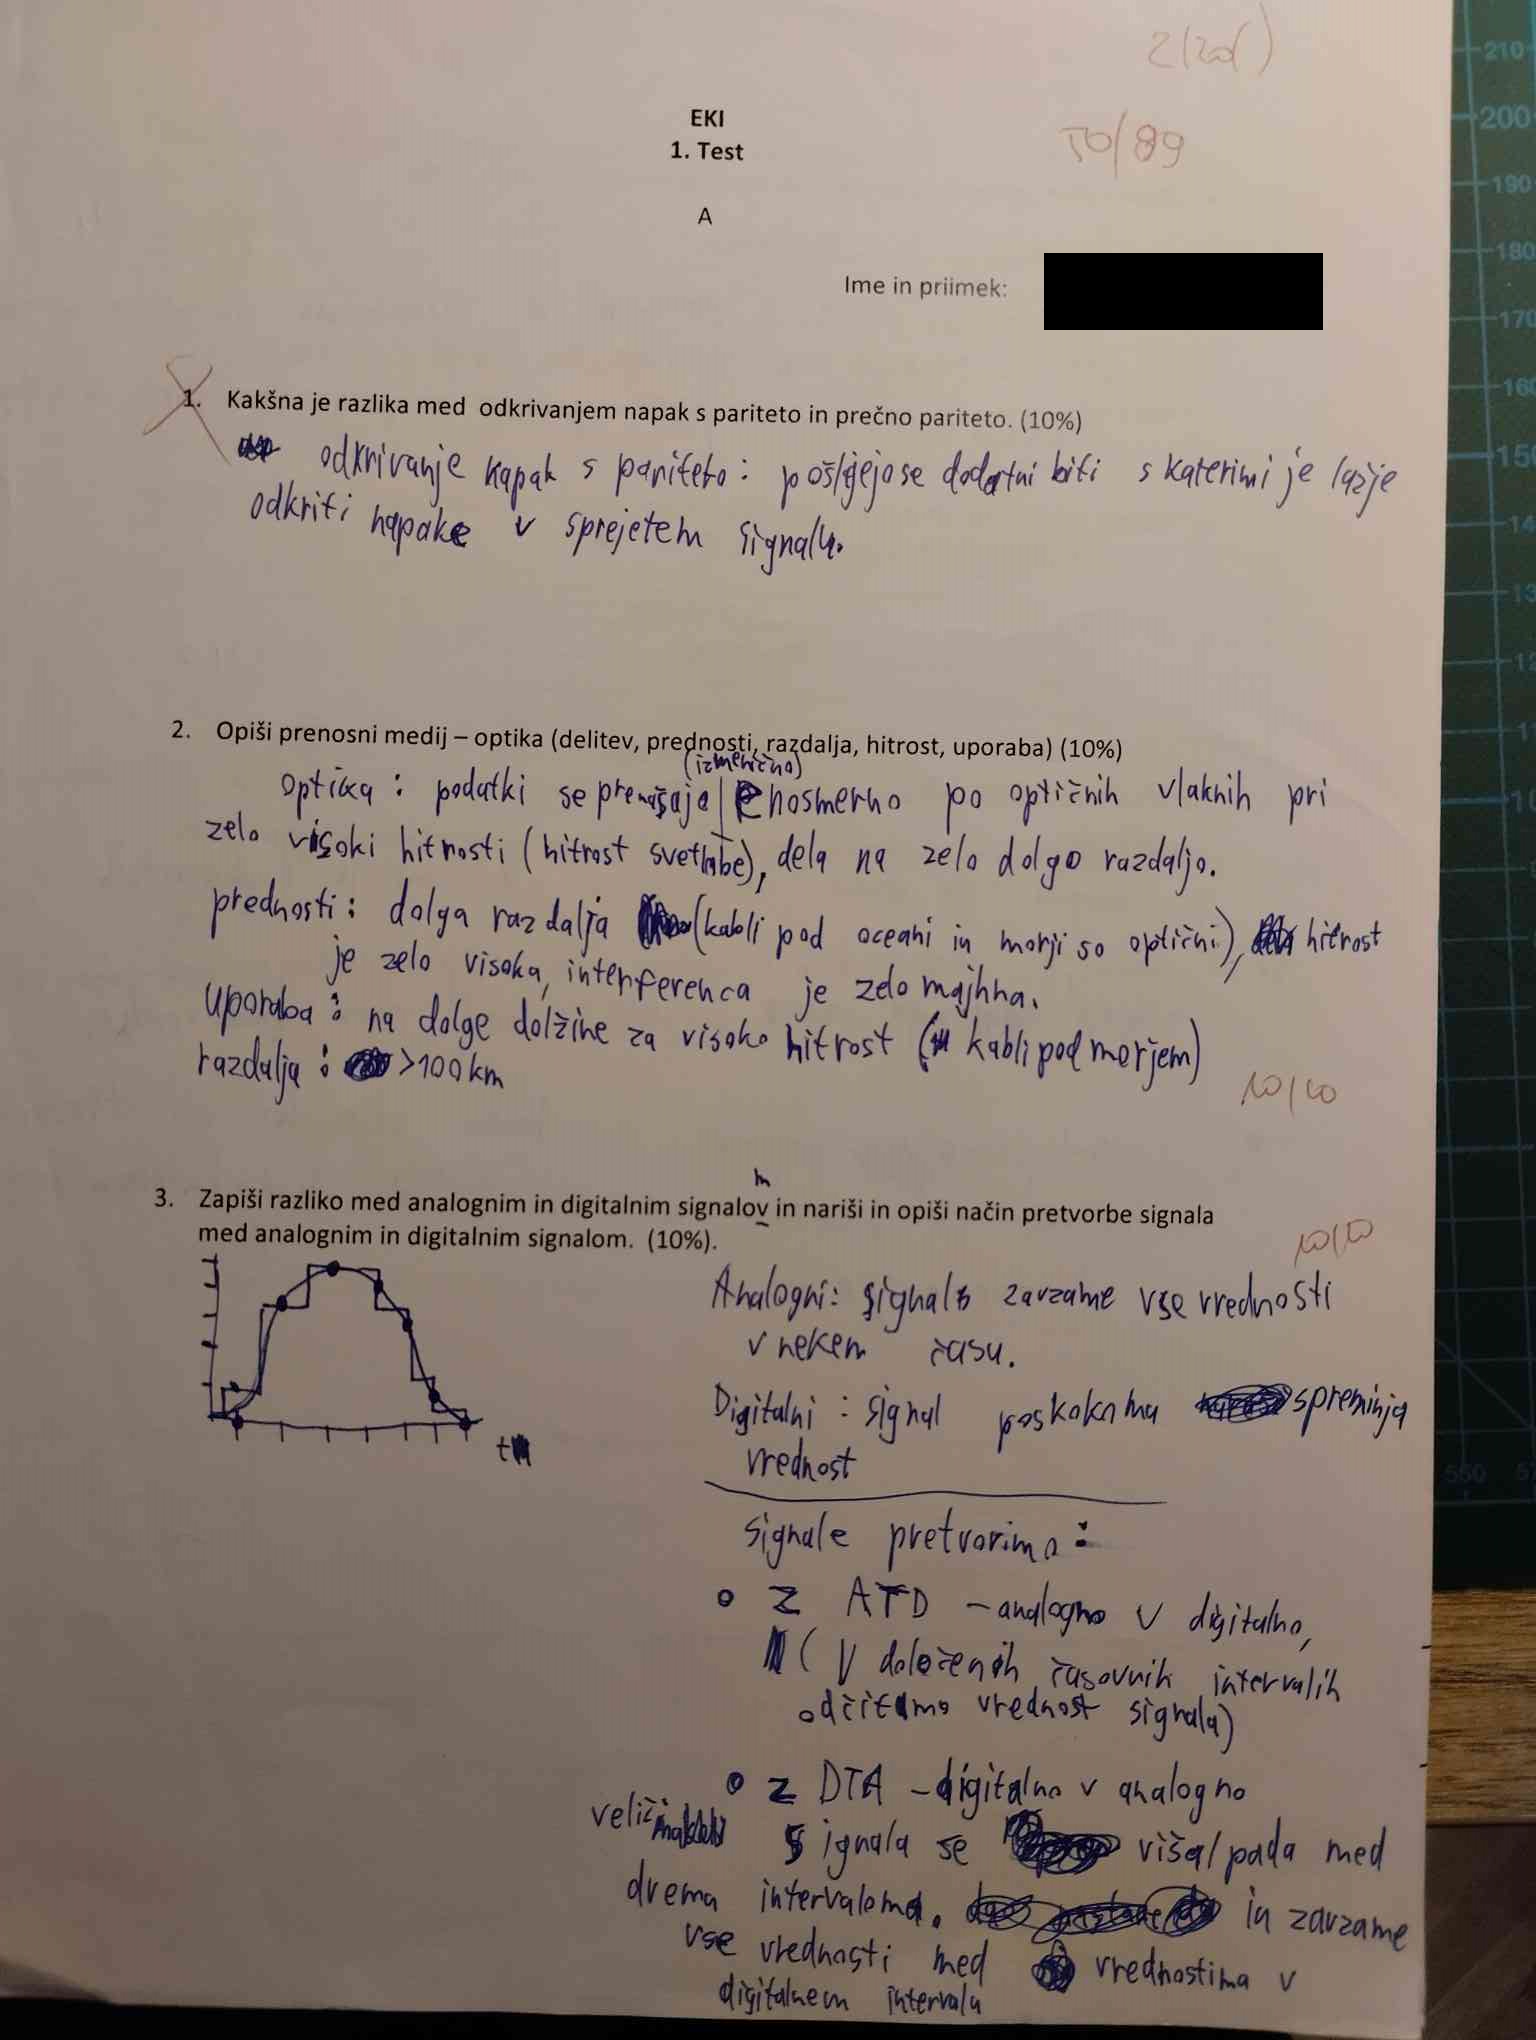 2(zd)
EKI
50/89
1. Test
A
Ime in priimek:
1. Kakšna je razlika med odkrivanjem napak s pariteto in prečno pariteto. (10%)
odkrivanje napak s pariteto: pošljejo se dodatni biti s katerimi je lažje
odkriti napake v sprejetem signalu.
2. Opiši prenosni medij – optika (delitev, prednosti, razdalja, hitrost, uporaba) (10%)
(izmenično)
optika: podatki se prenašajo enosmerno po optičnih vlaknih pri
zelo visoki hitrosti (hitrost svetlobe), dela na zelo dolgo razdaljo.
prednosti: dolga razdalja (kabli pod oceani in morji so optični), hitrost
je zelo visoka, interferenca je zelo majhna.
uporaba: na dolge dolžine za visoko hitrost (kabli pod morjem)
razdalja: >100km
10/10
m
3. Zapiši razliko med analognim in digitalnim signalov in nariši in opiši način pretvorbe signala
med analognim in digitalnim signalom. (10%).
10/10
Analogni: signal zavzame vse vrednosti
v nekem času.
Digitalni: signal poskokoma spreminja
t
vrednost
signale pretvorimo:
• z ATD – analogno v digitalno,
(V določenih časovnih intervalih
odčitamo vrednost signala)
• z DTA – digitalno v analogno
signala se viša/pada med
dvema intervaloma. in zavzame
vse vrednosti med vrednostima v
digitalnem intervalu